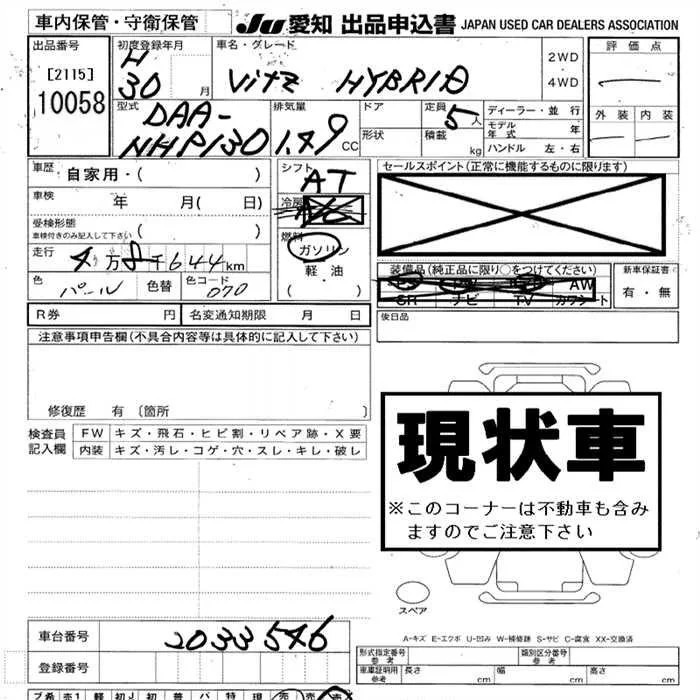 車内保管・守衛保管
JU 愛知 出品申込書 JAPAN USED CAR DEALERS ASSOCIATION
出品番号
[2115]
10058
初度登録年月
H
30 月
車名・グレード
Vitz HYBRID
2WD
4WD
評価点
外装 内装
型式
DAA-
NHP130
排気量
1.49 CC
ドア
形状
定員
5 人
積載 kg
ディーラー・並行
モデル年式 年
ハンドル 左・右
車歴 自家用・( )
車検 年 月( 日)
受検形態
車検付きのみ記入して下さい ( )
走行 4万8千644km
色 パール 色替 色コード 070
シフト
AT
冷房
燃料
ガソリン
軽油
( ・ )
セールスポイント(正常に機能するものに限ります)
装備品(純正品に限り○をつけてください)
AW
SR ナビ TV カワシート
新車保証書
有・無
R券 円 名変通知期限 月 日
後日品
注意事項申告欄(不具合内容等は具体的に記入して下さい)
修復歴 有 〔箇所 〕
検査員記入欄
FW キズ・飛石・ヒビ割・リペア跡・X要
内装 キズ・汚レ・コゲ・穴・スレ・キレ・破レ
現状車
※このコーナーは不動車も含み
ますのでご注意下さい
スペア
A-キズ E-エクボ U-凹み W-補修跡 S-サビ C-腐食 XX-交換済
車台番号 2033546
登録番号
形式指定番号 参考
類別区分番号 参考
車庫証明用 参考 長さ cm 幅 cm 高さ cm